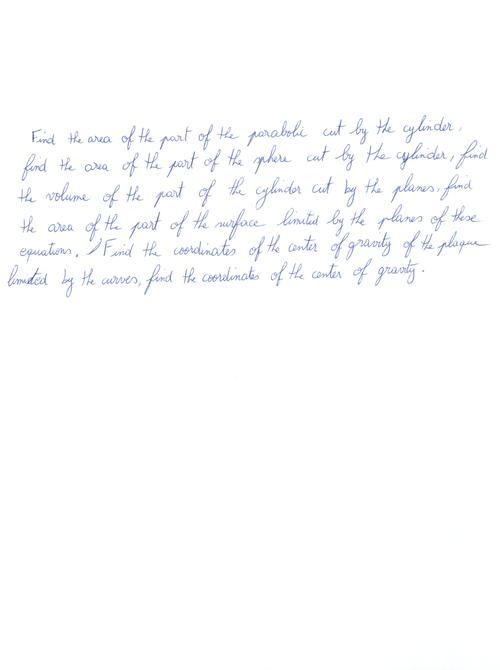 Find the area of the part of the parabolic cut by the cylinder,
find the area of the part of the sphere cut by the cylinder, find
the volume of the part of the cylinder cut by the planes, find
the area of the part of the surface limited by the planes of these
equations. / Find the coordinates of the center of gravity of the plaque
limited by the curves, find the coordinates of the center of gravity.